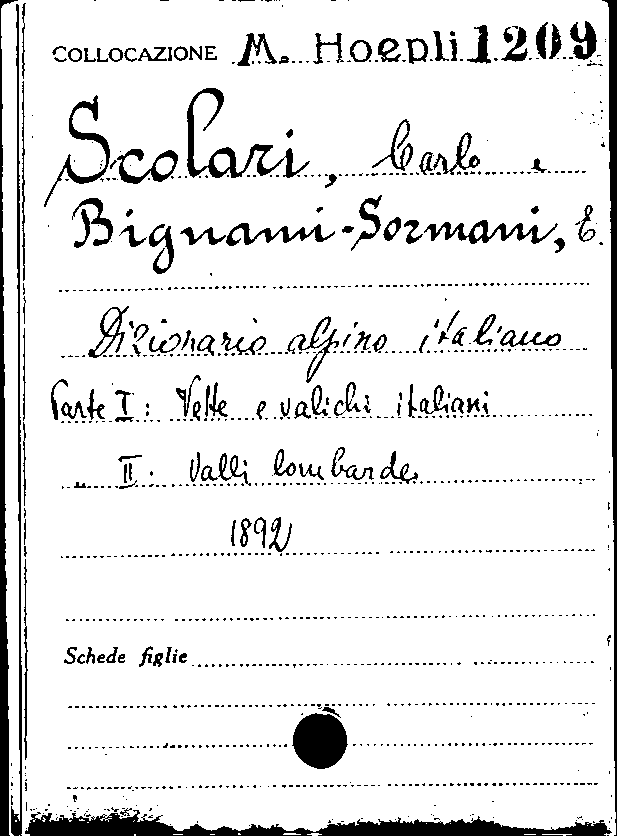 COLLOCAZIONE M. Hoepli 1209
Scolari, Carlo e
Bignami-Sormani, E.
Dizionario alpino italiano
Parte I: Vette e valichi italiani
" II. Valli lombarde
1892
Schede figlie